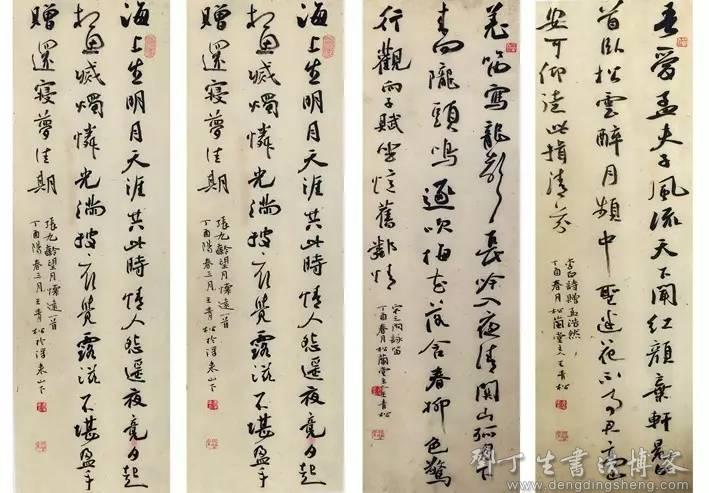 吾愛孟夫子風流天下聞紅顏棄軒冕白
首臥松雲醉月頻中聖迷花不事君高山
安可仰徒此揖清芬
李白詩贈孟浩然
丁酉春月松蘭堂主人王青松
羌笛寫龍聲長吟入夜清關山孤月下
來向隴頭鳴逐吹梅花落含春柳色驚
行觀向子賦坐憶舊鄰情
宋之問詠笛
丁酉春月松蘭堂主王青松
海上生明月天涯共此時情人怨遙夜竟夕起
相思滅燭憐光滿披衣覺露滋不堪盈手
贈還寢夢佳期
張九齡望月懷遠一首
丁酉陽春三月王青松於浮來山下
海上生明月天涯共此時情人怨遙夜竟夕起
相思滅燭憐光滿披衣覺露滋不堪盈手
贈還寢夢佳期
張九齡望月懷遠一首
丁酉陽春三月王青松於浮來山下
鄧丁生書法博客
www.dengdingsheng.com